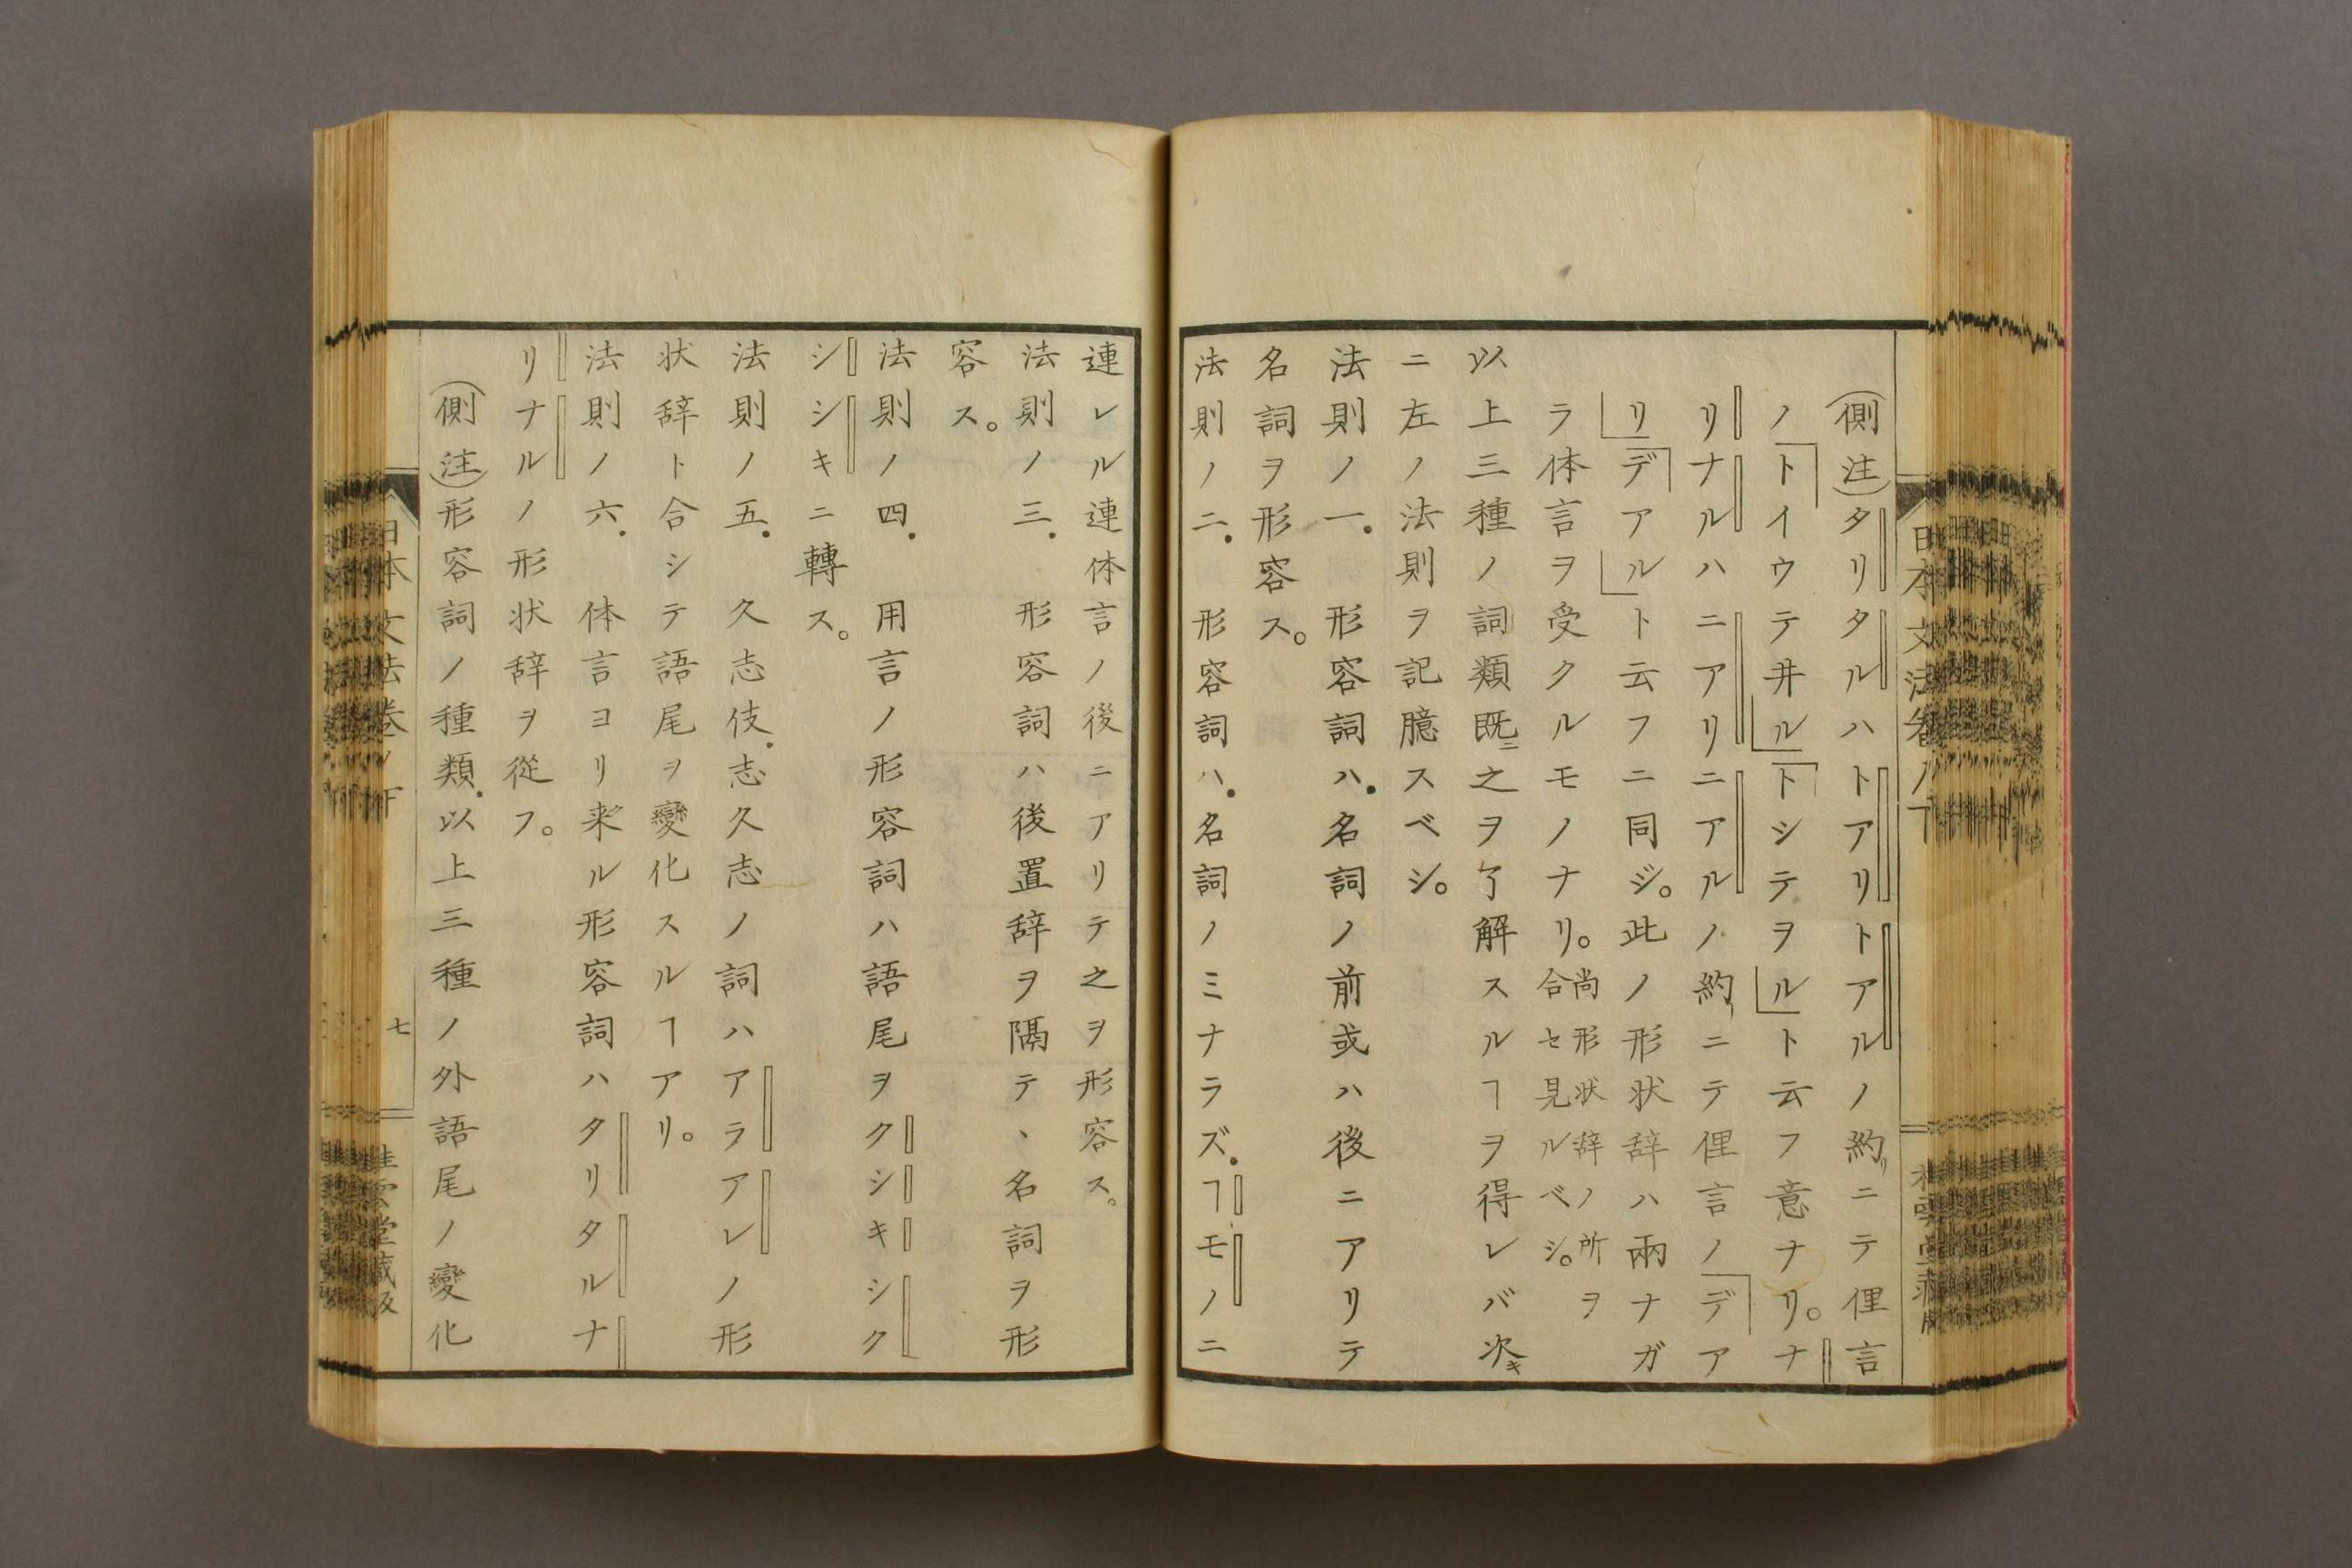 (側注)タリタルハトアリトアルノ約リニテ俚言
ノ「トイウテ井ル」「トシテヲル」ト云フ意ナリ。ナ
リナルハニアリニアルノ約ニテ俚言ノ「デア
リ」「デアル」ト云フニ同ジ。此ノ形状辞ハ兩ナガ
ラ体言ヲ受クルモノナリ。尚形状辞ノ所ヲ合セ見ルベシ。
以上三種ノ詞類既ニ之ヲ了解スルヿヲ得レバ次キ
ニ左ノ法則ヲ記臆スベシ。
法則ノ一.形容詞ハ.名詞ノ前或ハ後ニアリテ
名詞ヲ形容ス。
法則ノ二.形容詞ハ.名詞ノミナラズ.ヿモノニ
連レル連体言ノ後ニアリテ之ヲ形容ス。
法則ノ三.形容詞ハ後置辞ヲ隔テ、名詞ヲ形
容ス。
法則ノ四.用言ノ形容詞ハ語尾ヲクシキシク
シシキニ轉ス。
法則ノ五.久志伎.志久志ノ詞ハアラアレノ形
状辞ト合シテ語尾ヲ變化スルヿアリ。
法則ノ六.体言ヨリ来ル形容詞ハタリタルナ
リナルノ形状辞ヲ從フ。
(側注)形容詞ノ種類.以上三種ノ外語尾ノ變化
日本文法巻ノ下
七